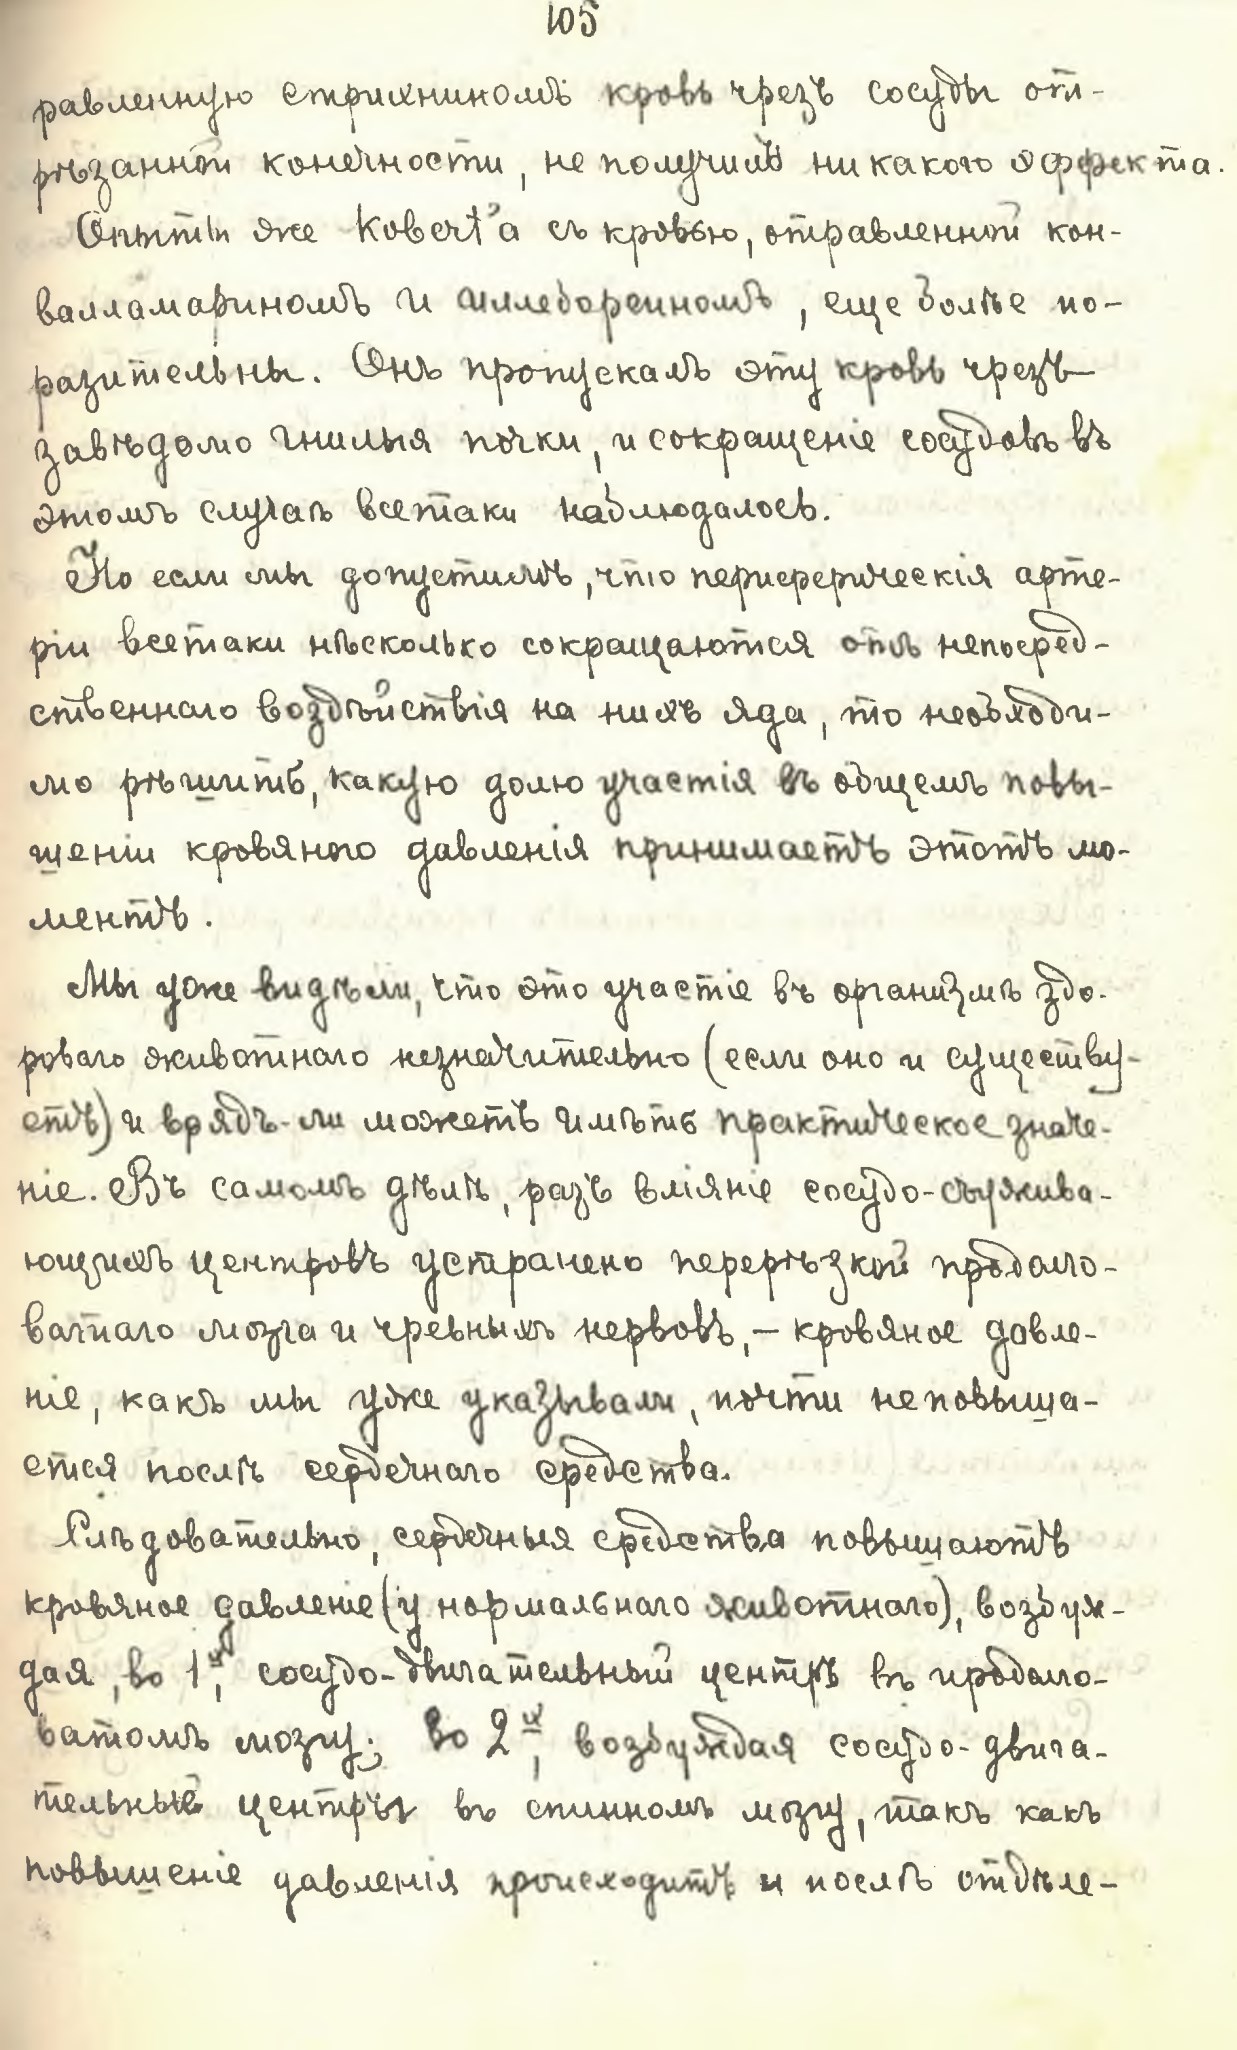 105
равленную стрихниномъ кровь чрезъ сосуды от-
рѣзанной конечности, не получилъ никакого эффекта.
Опыты же Kobert'a съ кровью, отравленной кон-
валламариномъ и иллебореиномъ, еще болѣе по-
разительны. Онъ пропускалъ эту кровь чрезъ
завѣдомо гнилыя почки, и сокращеніе сосудовъ въ
этомъ случаѣ всетаки наблюдалось.
Но если мы допустимъ, что периферическія арте-
ріи всетаки нѣсколько сокращаются отъ непосред-
ственнаго воздѣйствія на нихъ яда, то необходи-
мо рѣшить, какую долю участія въ общемъ повы-
шеніи кровяного давленія принимаетъ этотъ мо-
ментъ.
Мы уже видѣли, что это участіе въ организмѣ здо-
роваго животнаго незначительно (если оно и существу-
етъ) и врядъ-ли можетъ имѣть практическое значе-
ніе. Въ самомъ дѣлѣ, разъ вліяніе сосудо-съужива-
ющихъ центровъ устранено перерѣзкой продолго-
ватаго мозга и чревныхъ нервовъ, – кровяное давле-
ніе, какъ мы уже указывали, почти не повыша-
ется послѣ сердечнаго средства.
Слѣдовательно, сердечныя средства повышаютъ
кровяное давленіе (у нормальнаго животнаго), возбуж-
дая, во 1ˣ, сосудо-двигательный центръ въ продолго-
ватомъ мозгу; во 2ˣ, возбуждая сосудо-двига-
тельные центры въ спинномъ мозгу, такъ какъ
повышеніе давленія происходитъ и послѣ отдѣле-